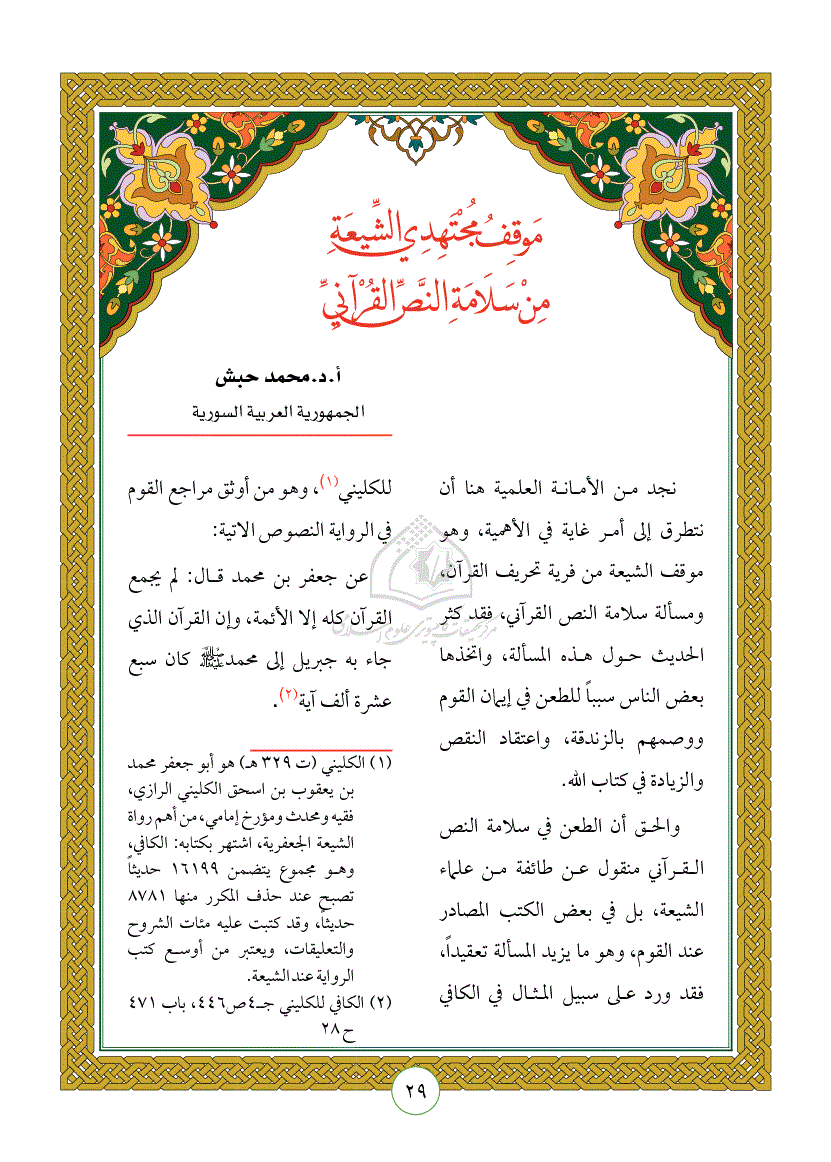 مَوقِفُ مُجْتَهِدِي الشِّيعَةِ
مِنْ سَلَامَةِ النَّصِّ القُرْآنيِّ
أ.د.محمد حبش
الجمهورية العربية السورية
نجد من الأمانة العلمية هنا أن
نتطرق إلى أمر غاية في الأهمية، وهو
موقف الشيعة من فرية تحريف القرآن،
ومسألة سلامة النص القرآني، فقد كثر
الحديث حول هذه المسألة، واتخذها
بعض الناس سبباً للطعن في إيمان القوم
ووصمهم بالزندقة، واعتقاد النقص
والزيادة في كتاب الله.
والحق أن الطعن في سلامة النص
القرآني منقول عن طائفة من علماء
الشيعة، بل في بعض الكتب المصادر
عند القوم، وهو ما يزيد المسألة تعقيداً،
فقد ورد على سبيل المثال في الكافي
للكليني(١)، وهو من أوثق مراجع القوم
في الرواية النصوص الاتية:
عن جعفر بن محمد قال: لم يجمع
القرآن كله إلا الأئمة، وإن القرآن الذي
جاء به جبريل إلى محمدﷺ كان سبع
عشرة ألف آية(٢).
(١) الكليني (ت ٣٢٩ هـ) هو أبو جعفر محمد
بن يعقوب بن اسحق الكليني الرازي،
فقيه ومحدث ومؤرخ إمامي، من أهم رواة
الشيعة الجعفرية، اشتهر بكتابه: الكافي،
وهو مجموع يتضمن ١٦١٩٩ حديثاً
تصبح عند حذف المكرر منها ٨٧٨١
حديثاً، وقد كتبت عليه مئات الشروح
والتعليقات، ويعتبر من أوسع كتب
الرواية عند الشيعة.
(٢) الكافي للكليني جـ٤ص٤٤٦، باب ٤٧١
ح ٢٨
مرکز تحقیقات کامپیوتری علوم اسلامی
٢٩